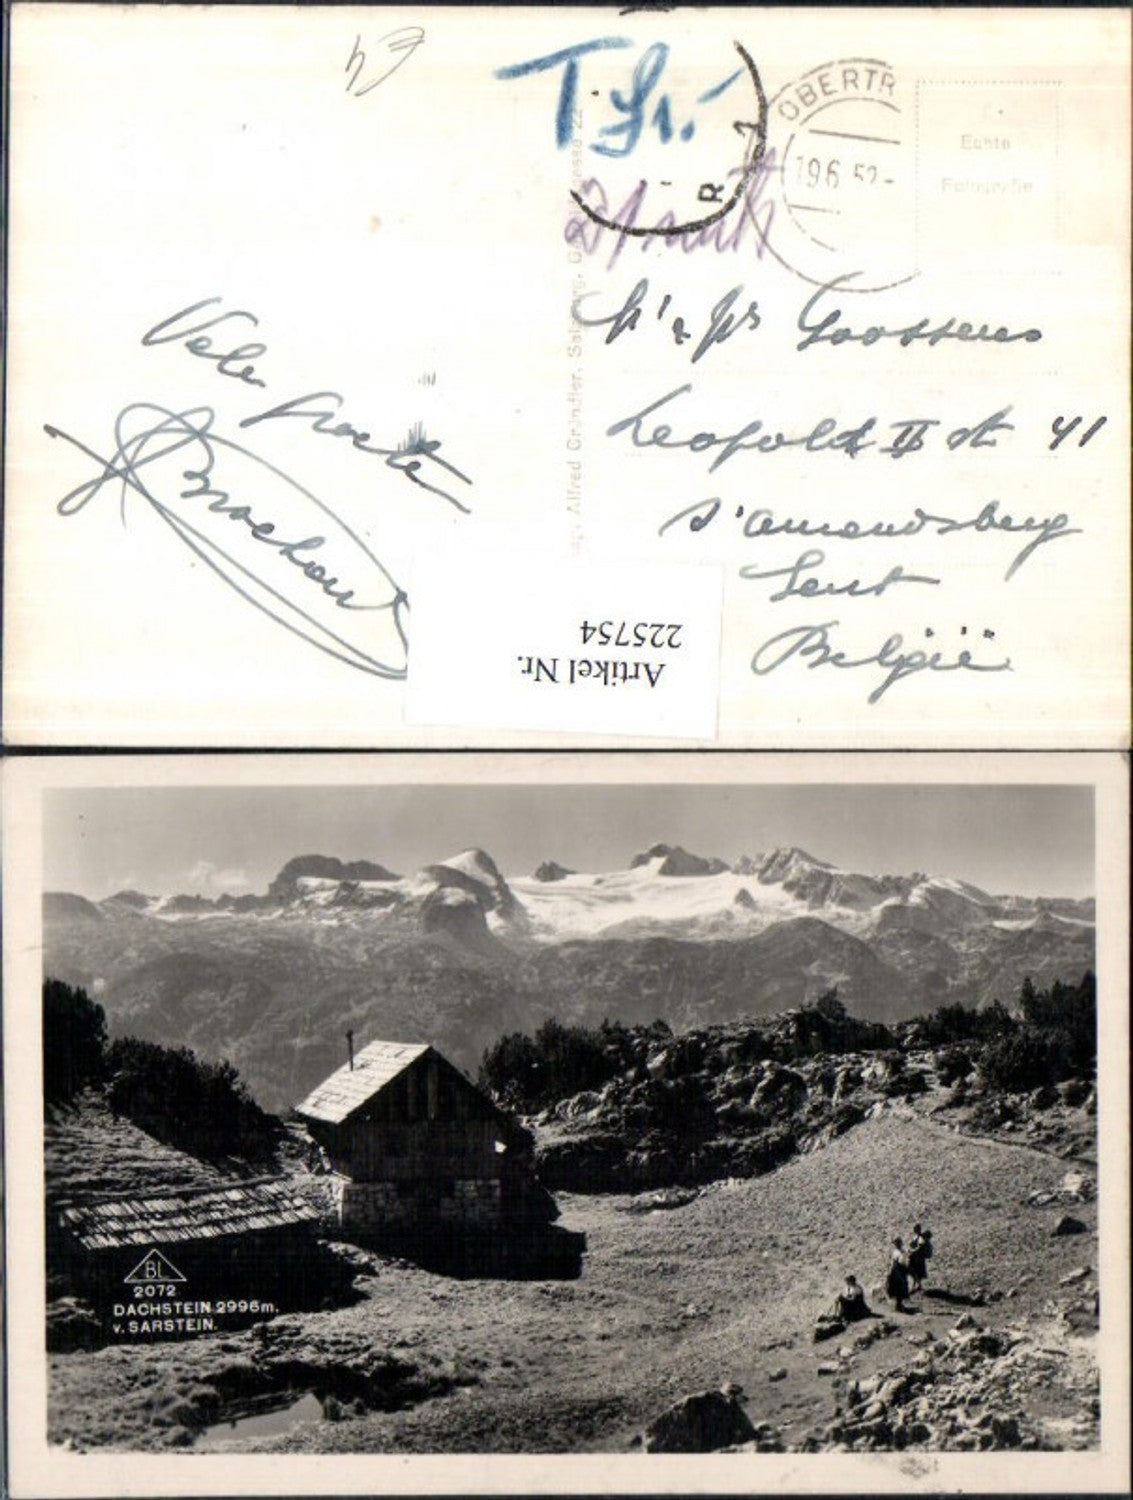 T. Gr.
OBERTR
19 6 52 -
R
Echte
Fotografie
Alfred Gründler, Salzburg, G
Vele groeten
Mr & Ms Goossens
Leopold II str 41
St Amandsberg
Gent
België
Artikel Nr.
225754
BL
2072
DACHSTEIN 2996m.
v. SARSTEIN.